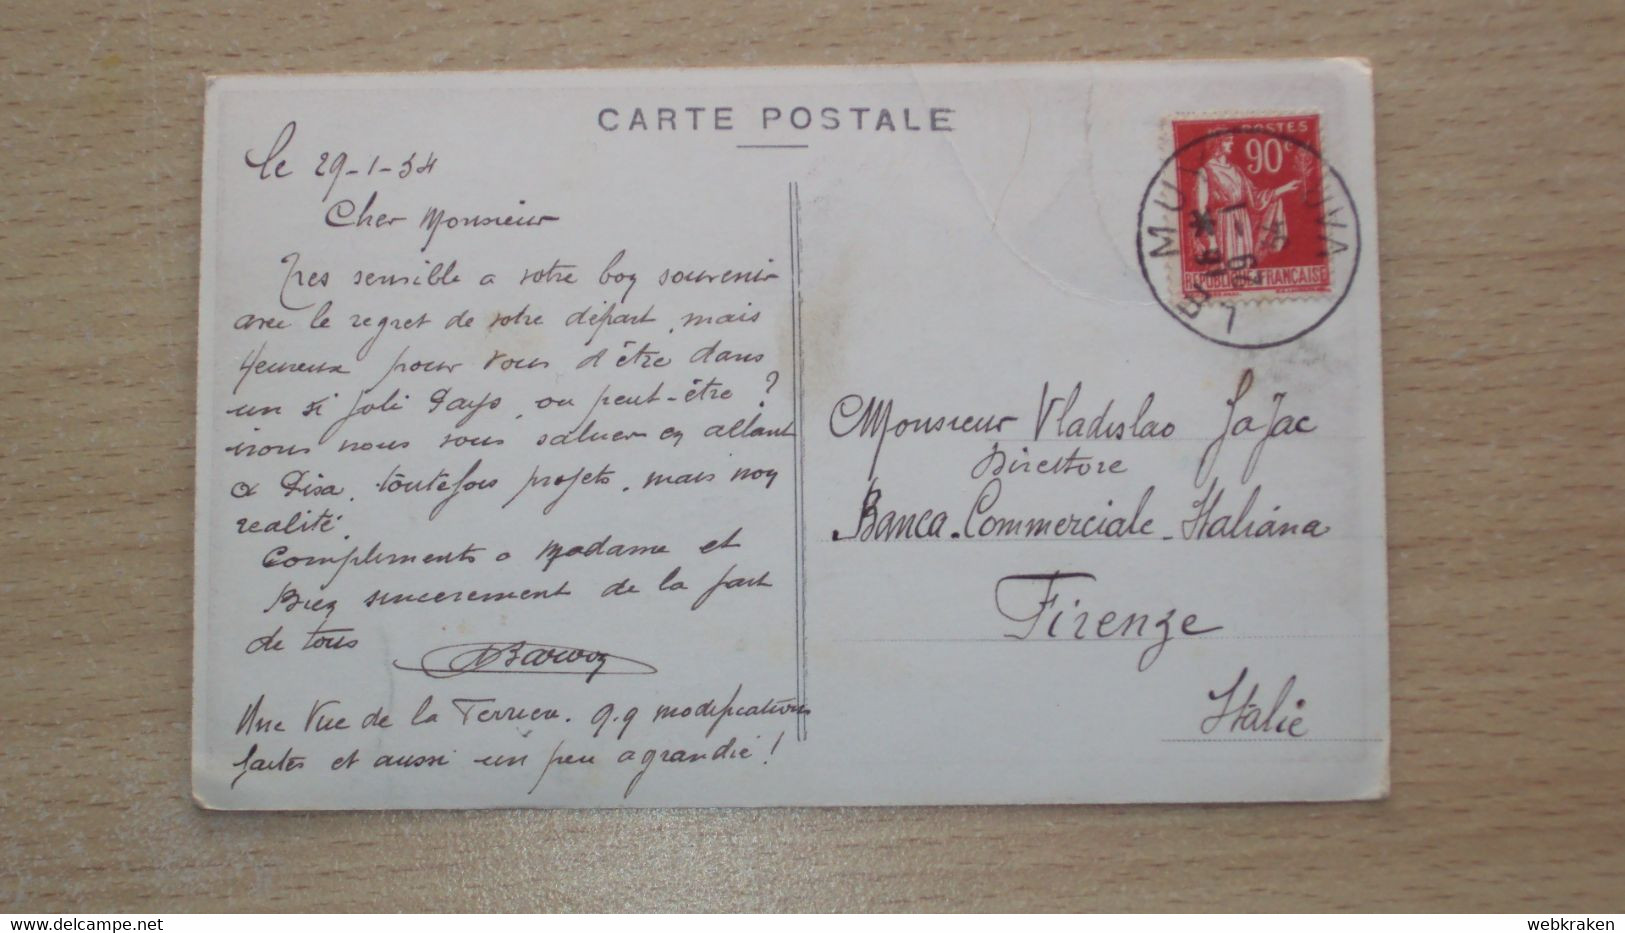 CARTE POSTALE
le 29-1-34
Cher Monsieur
Tres sensible a votre bon souvenir
avec le regret de votre départ, mais
Heureux pour vous d'être dans
un si joli Pays, ou peut-être ?
irons nous vous saluer en allant
a Pisa, toutefois projets, mais non
realité.
Compliments a Madame et
Bien sincerement de la part
de tous
Une Vue de la q.q modifications
faites et aussi un peu agrandie !
POSTES
90c
REPUBLIQUE FRANÇAISE
Monsieur Vladislao
Direttore
Banca Commerciale Italiana
Firenze
Italie
delcampe.net
webkraken